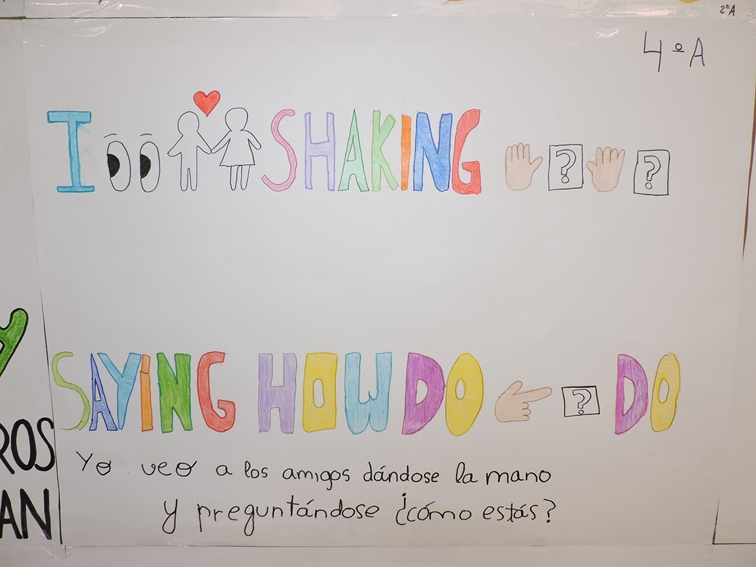 2ºA
4ºA
I SHAKING ? ?
SAYING HOW DO ? DO
Yo veo a los amigos dándose la mano
y preguntándose ¿cómo estás?
ROS
AN